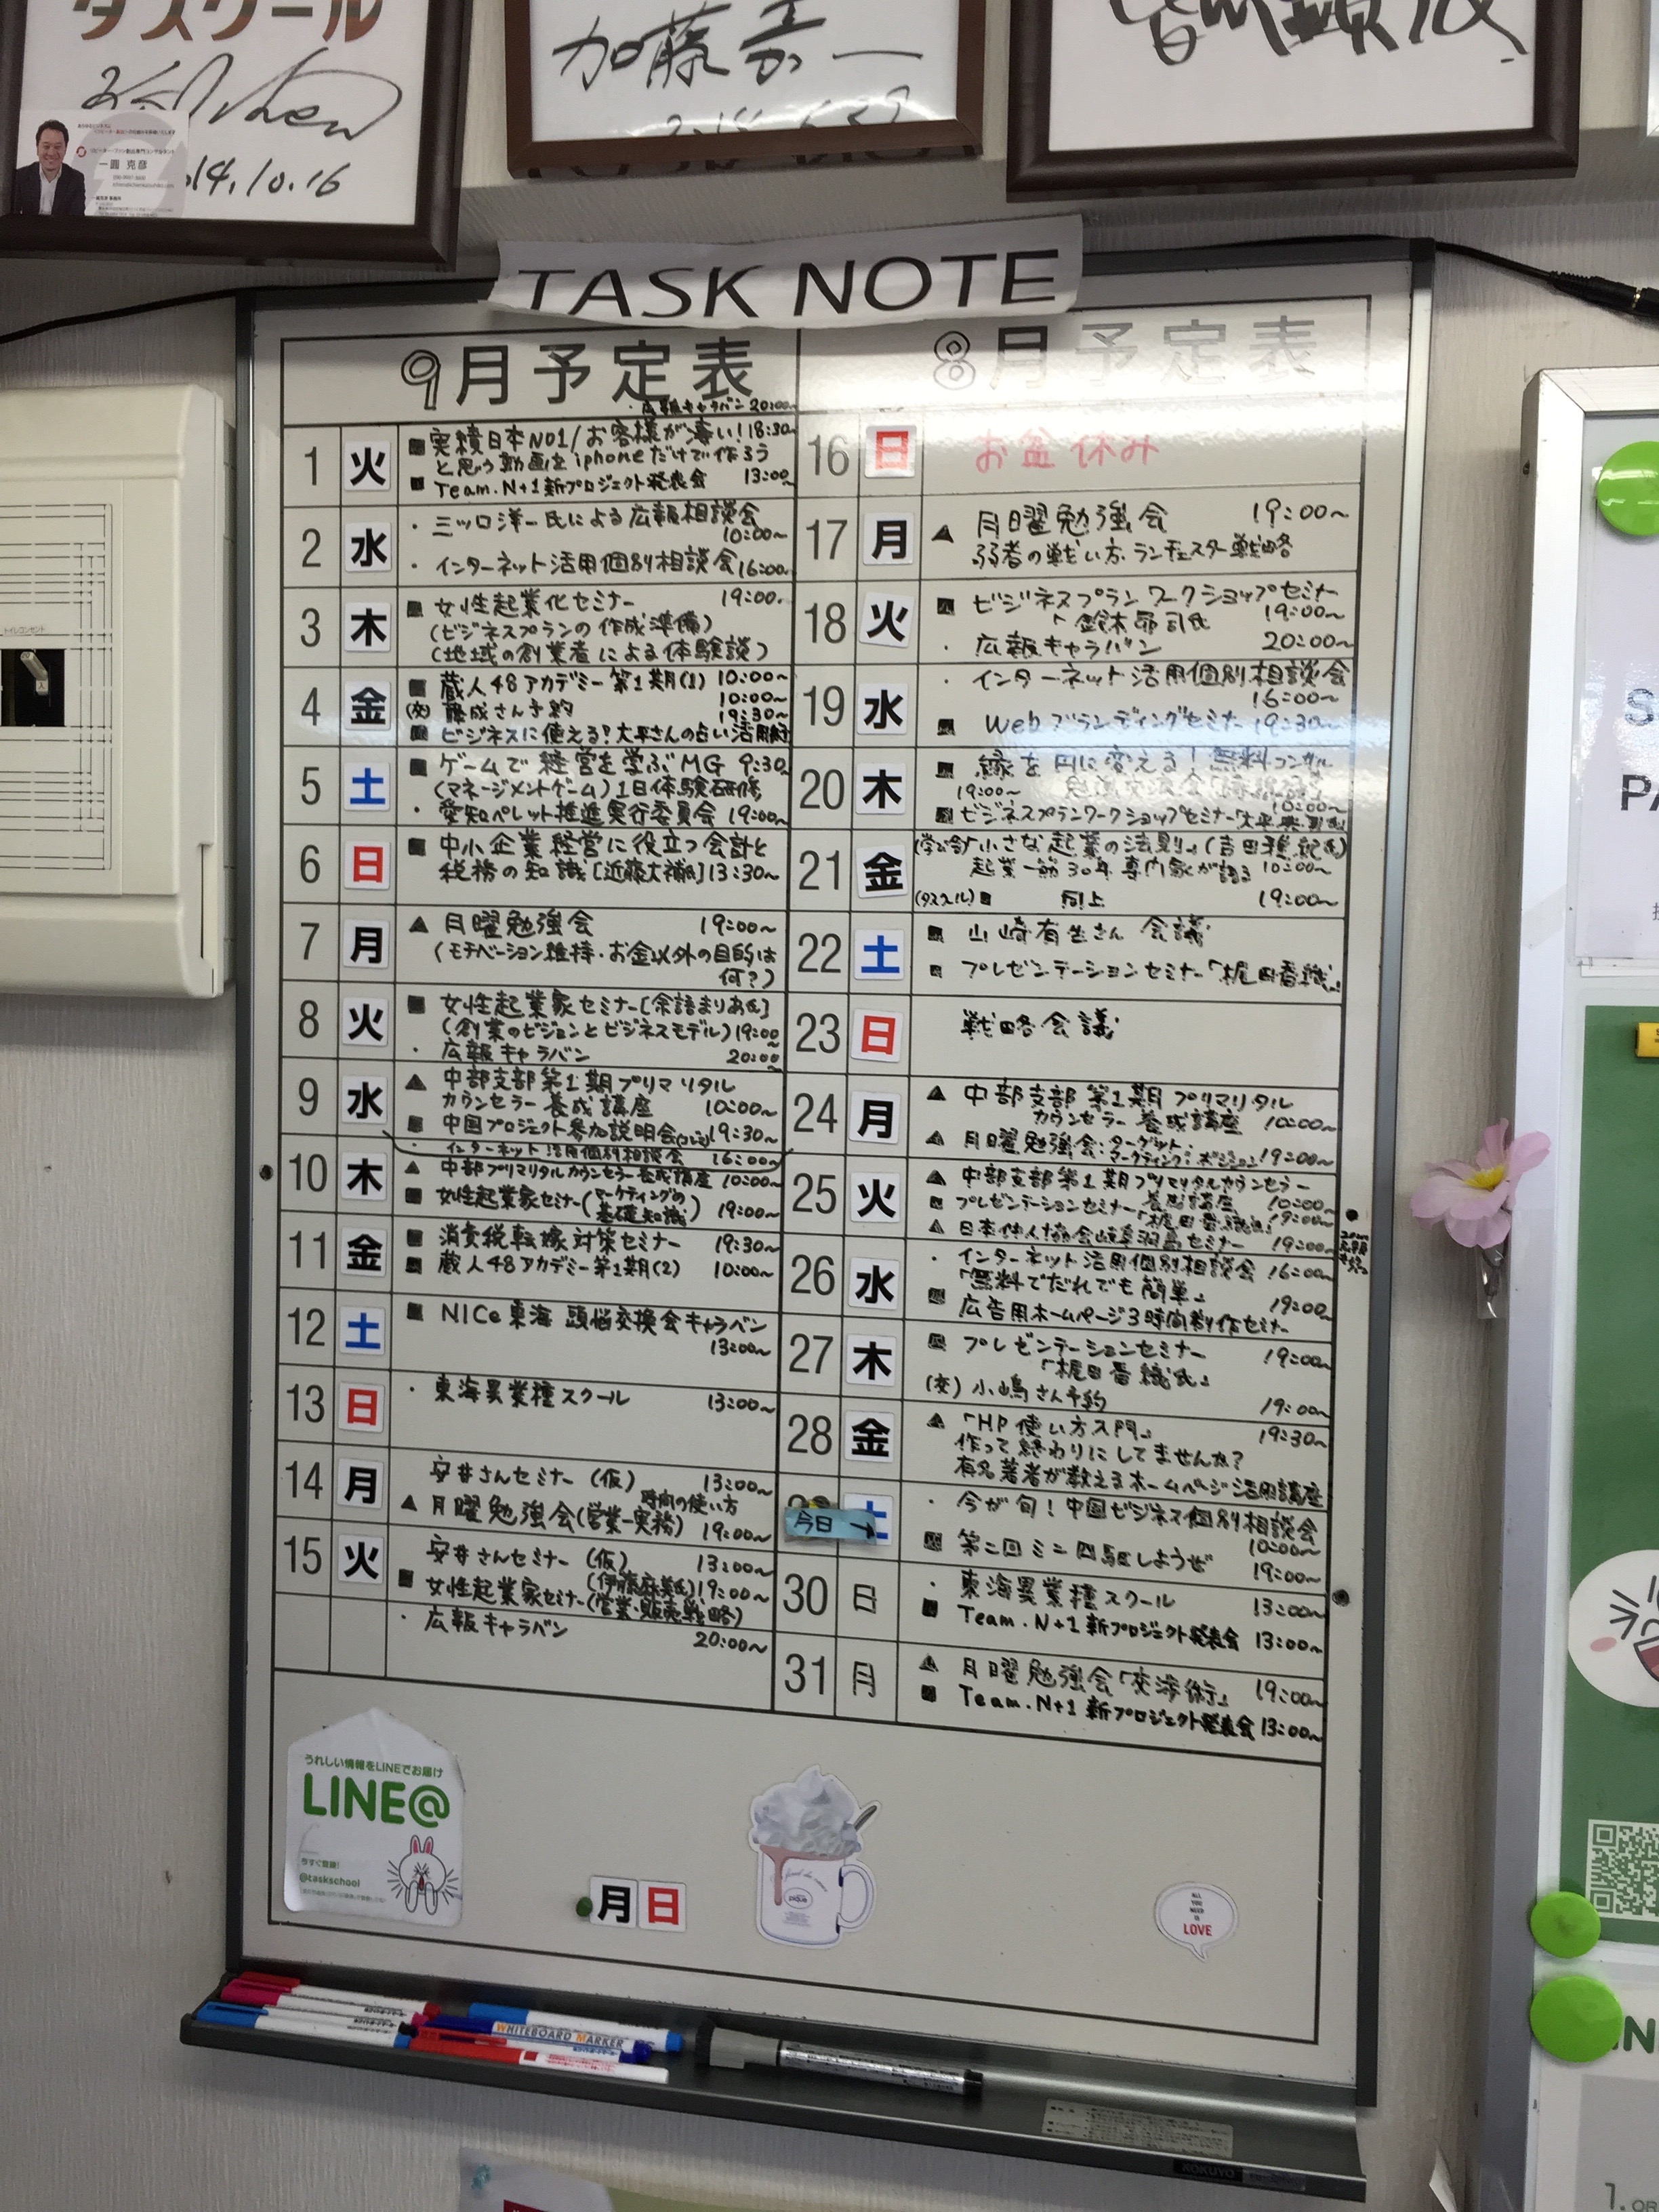 タスクール
加藤嘉一
一圓 克彦
2014.10.16
TASK NOTE
9月予定表
・広報キャラバン 20:00~
1 火 ■ 実績日本NO1/お客様が凄い! 18:30~
と思う動画をiphoneだけで作ろう
■ Team.N+1新プロジェクト発表会 13:00~
2 水 ・三ツ口洋一氏による広報相談会
10:00~
・インターネット活用個別相談会 16:00~
3 木 ■ 女性起業化セミナー 19:00~
(ビジネスプランの作成準備)
(地域の創業者による体験談)
4 金 ■ 蔵人48アカデミー第1期(1) 10:00~
(交) 藤成さん予約 10:00~
19:30~
■ ビジネスに使える!大平さんの占い活用術
5 土 ■ ゲームで経営を学ぶMG 9:30~
(マネージメントゲーム)1日体験研修
・愛知ペレット推進実行委員会 19:00~
6 日 ■ 中小企業経営に役立つ会計と
税務の知識[近藤大補氏]13:30~
7 月 ▲ 月曜勉強会 19:00~
(モチベーション維持・お金以外の目的は
何?)
8 火 ■ 女性起業家セミナー[余語まりあ氏]
(創業のビジョンとビジネスモデル)19:00~
・広報キャラバン 20:00~
9 水 ▲ 中部支部第1期プリマリタル
カウンセラー養成講座 10:00~
■ 中国プロジェクト参加説明会 19:30~
・インターネット活用個別相談会 16:00~
10 木 ▲ 中部プリマリタルカウンセラー養成講座 10:00~
■ 女性起業家セミナー(マーケティングの
基礎知識) 19:00~
11 金 ■ 消費税転嫁対策セミナー 19:30~
■ 蔵人48アカデミー第1期(2) 10:00~
12 土 ■ NICe東海 頭悩交換会キャラバン
13:00~
13 日 ・東海異業種スクール 13:00~
14 月 安井さんセミナー(仮) 13:00~
時間の使い方
▲ 月曜勉強会(営業-実務) 19:00~
15 火 安井さんセミナー(仮) 13:00~
(伊藤麻美氏)19:00~
■ 女性起業家セミナー(営業・販売戦略)
・広報キャラバン 20:00~
8月予定表
16 日 お盆休み
17 月 ▲ 月曜勉強会 19:00~
弱者の戦い方、ランチェスター戦略
18 火 ■ ビジネスプランワークショップセミナー
鈴木昂司氏 19:00~
・広報キャラバン 20:00~
19 水 ・インターネット活用個別相談会
16:00~
■ Webブランディングセミナー 19:30~
20 木 ■ 縁を円に変える!無料コンサル
19:00~
■ ビジネスプランワークショップセミナー
21 金 (学び舎)「小さな起業の法則」(吉田雅紀氏)
起業一筋30年専門家が語る 10:00~
(タスクール) ■ 同上 19:00~
22 土 ■ 山崎有生さん 会議
■ プレゼンテーションセミナー「梶田香織」
23 日 戦略会議
24 月 ▲ 中部支部 第1期 プリマリタル
カウンセラー養成講座 10:00~
▲ 月曜勉強会:ターゲット・
マーケティング:ポジション 19:00~
25 火 ▲ 中部支部第1期プリマリタルカウンセラー
養成講座 10:00~
■ プレゼンテーションセミナー「梶田香織氏」19:00~
▲ 日本仲人協会岐阜羽島セミナー 19:00~
26 水 ・インターネット活用個別相談会 16:00~
「無料でだれでも簡単」
■ 19:00~
広告用ホームページ3時間制作セミナー
27 木 ■ プレゼンテーションセミナー 19:00~
「梶田香織氏」
(交) 小嶋さん予約 19:00~
28 金 ▲ 「HP使い方入門」 19:30~
作って終わりにしてませんか?
有名著者が教えるホームページ活用講座
今日→ 土 ・今が旬!中国ビジネス個別相談会
10:00~
■ 第二回ミニ四駆しようぜ 19:00~
30 日 ・東海異業種スクール 13:00~
■ Team.N+1新プロジェクト発表会 13:00~
31 月 ▲ 月曜勉強会「交渉術」 19:00~
■ Team.N+1新プロジェクト発表会 13:00~
うれしい情報をLINEでお届け
LINE@
今すぐ登録!
@taskschool
月日
ALL
YOU
NEED
IS
LOVE
WHITEBOARD MARKER
KOKUYO